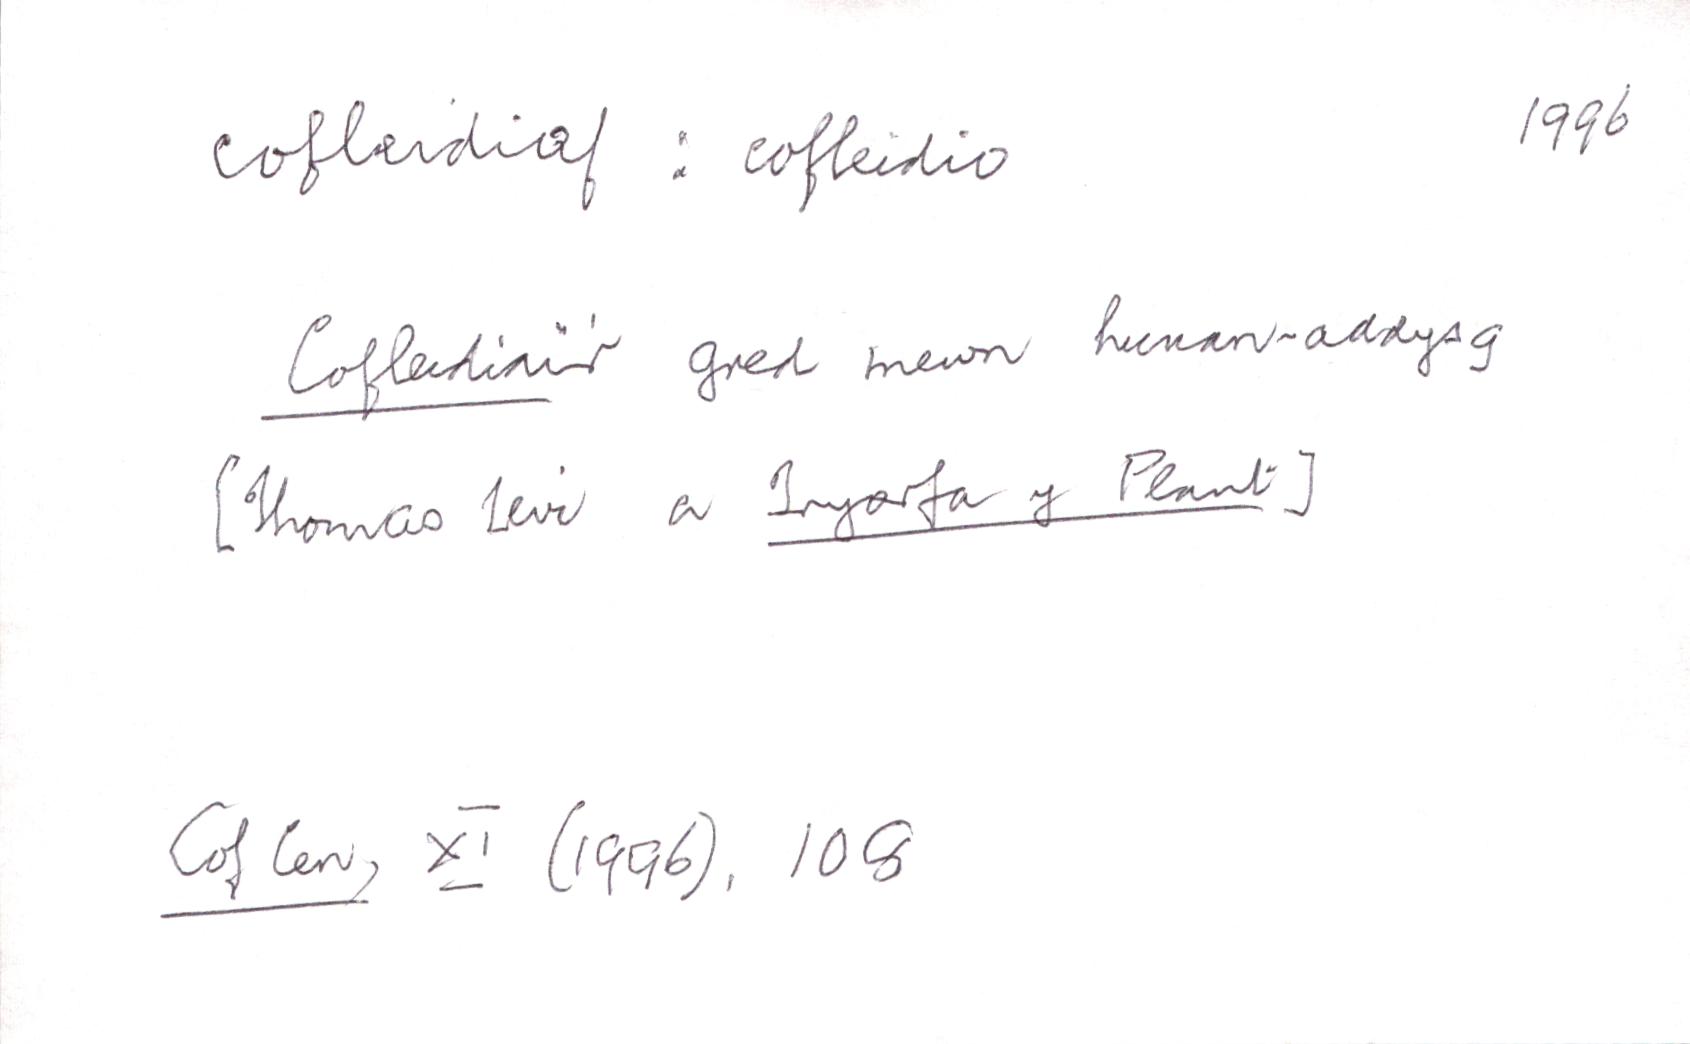 cofleidiaf : cofleidio 1996
Cofleidiai'r gred mewn hunan-addysg
[Thomas Levi a Trysorfa y Plant]
Cof Cen, XI (1996), 108